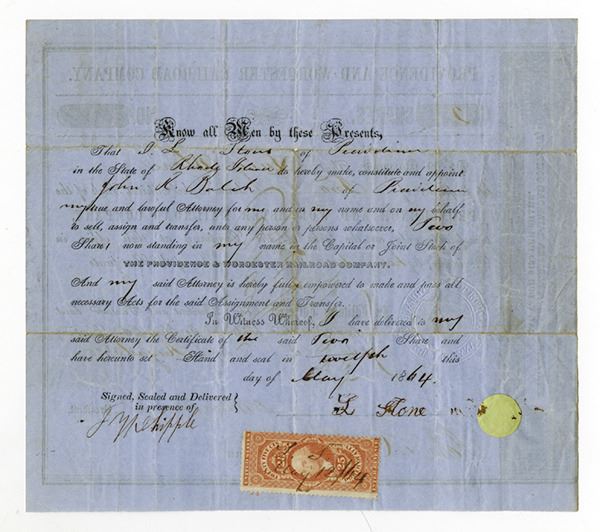 PROVIDENCE AND WORCESTER RAILROAD COMPANY.
Know all Men by these Presents,
That I. L. Stone of Providence
in the State of Rhode Island do hereby make, constitute and appoint
John K. Balch of Providence
my true and lawful Attorney for me and in my name and on my behalf
to sell, assign and transfer, unto any person or persons whatsoever, Two
Shares now standing in my name in the Capital or Joint Stock of
THE PROVIDENCE & WORCESTER RAILROAD COMPANY.
And my said Attorney is hereby fully empowered to make and pass all
necessary Acts for the said Assignment and Transfer.
In Witness Whereof, I have delivered to my
said Attorney the Certificate of the said Two Share and
have hereunto set Hand and seal in twelfth this
day of May 1864.
Signed, Sealed and Delivered
in presence of
L Stone
Whipple
25 25